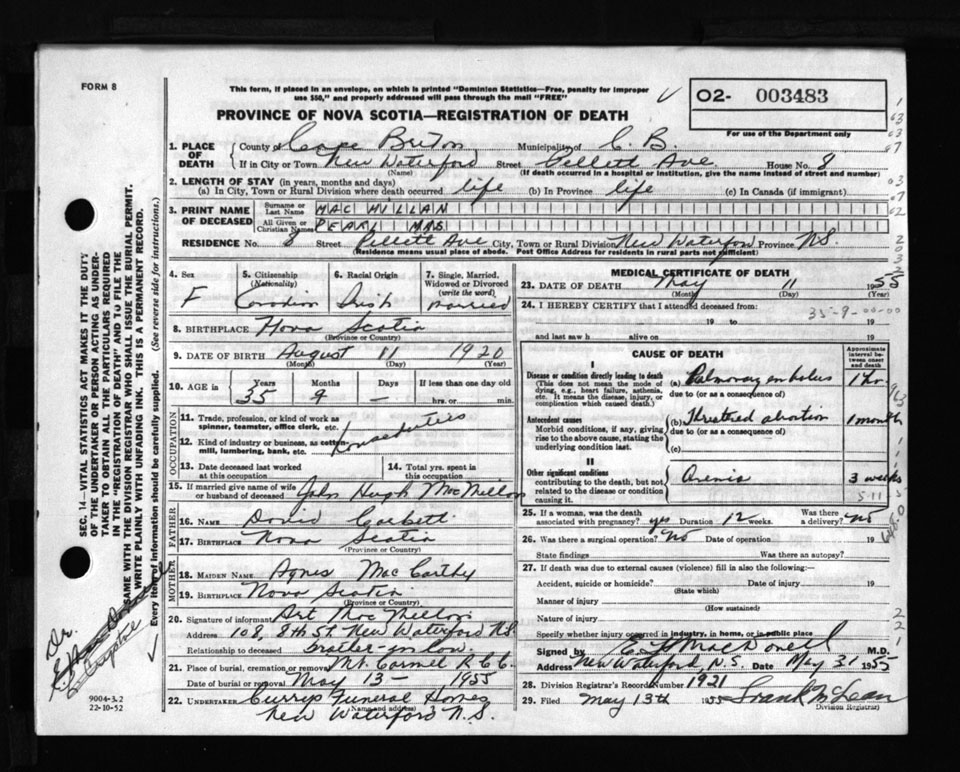 FORM 8
This form, if placed in an envelope, on which is printed "Dominion Statistics—Free, penalty for improper
use $50," and properly addressed will pass through the mail "FREE"
PROVINCE OF NOVA SCOTIA—REGISTRATION OF DEATH
O2- 003483
For use of the Department only
1. PLACE OF DEATH
County of Cape Breton Municipality of C. B.
If in City or Town New Waterford Street Gillett Ave. House No. 8
(Name) (If death occurred in a hospital or institution, give the name instead of street and number)
2. LENGTH OF STAY (in years, months and days)
(a) In City, Town or Rural Division where death occurred life (b) In Province life (c) In Canada (if immigrant)
3. PRINT NAME OF DECEASED
Surname or Last Name MAC MILLAN
All Given or Christian Names PEARL MRS.
RESIDENCE No. 8 Street Gillett Ave City, Town or Rural Division New Waterford Province N.S.
(Residence means usual place of abode. Post Office Address for residents in rural parts not sufficient)
4. Sex F
5. Citizenship (Nationality) Canadian
6. Racial Origin Irish
7. Single, Married, Widowed or Divorced (write the word) Married
8. BIRTHPLACE Nova Scotia
(Province or Country)
9. DATE OF BIRTH August 11 1920
(Month) (Day) (Year)
10. AGE in Years Months Days If less than one day old
35 9 — hrs. or min.
OCCUPATION
11. Trade, profession or kind of work as spinner, teamster, office clerk, etc.
12. Kind of industry or business, as cotton-mill, lumbering, bank, etc.
Houseduties
13. Date deceased last worked at this occupation
14. Total yrs. spent in this occupation
15. If married give name of wife or husband of deceased John Hugh MacMillan
FATHER
16. NAME David Corbett
17. BIRTHPLACE Nova Scotia
(Province or Country)
MOTHER
18. MAIDEN NAME Agnes MacCarthy
19. BIRTHPLACE Nova Scotia
(Province or Country)
20. Signature of informant Art MacMillan
Address 108, 8th St. New Waterford N.S.
Relationship to deceased Brother-in-law.
21. Place of burial, cremation or removal Mt. Carmel R.C.C.
Date of burial or removal May 13 - 1955
22. UNDERTAKER Currys Funeral Homes
(Name and address)
New Waterford N.S.
MEDICAL CERTIFICATE OF DEATH
23. DATE OF DEATH May 11 1955
(Month) (Day) (Year)
24. I HEREBY CERTIFY that I attended deceased from
35-9-00-00
19 to 19
and last saw h alive on 19
CAUSE OF DEATH
Approximate interval between onset and death
I
Disease or condition directly leading to death (a) Pulmonary embolus 1 hr.
(This does not mean the mode of dying, e.g., heart failure, asthenia, etc. It means the disease, injury, or complication which caused death.)
due to (or as a consequence of)
Antecedent causes (b) Threatened abortion 1 month
Morbid conditions, if any, giving rise to the above cause, stating the underlying condition last.
due to (or as a consequence of)
(c)
II
Other significant conditions
contributing to the death, but not related to the disease or condition causing it.
3 weeks
5-11
25. If a woman, was the death associated with pregnancy? yes Duration 12 weeks. Was there a delivery? No
26. Was there a surgical operation? No Date of operation 19
State findings Was there an autopsy?
27. If death was due to external causes (violence) fill in also the following:—
Accident, suicide or homicide? Date of injury 19
(State which)
Manner of injury
(How sustained)
Nature of injury
Specify whether injury occurred in industry, in home, or in public place
Signed by MacDonell M.D.
Address New Waterford, N.S. Date May 31 1955
28. Division Registrar's Record Number 1921
29. Filed May 13th 1955 Frank McLean
(Division Registrar)
SEC. 14—VITAL STATISTICS ACT MAKES IT THE DUTY
OF THE UNDERTAKER OR PERSON ACTING AS UNDER-
TAKER TO OBTAIN ALL THE PARTICULARS REQUIRED
IN THE "REGISTRATION OF DEATH" AND TO FILE THE
SAME WITH THE DIVISION REGISTRAR WHO SHALL ISSUE THE BURIAL PERMIT.
WRITE PLAINLY WITH UNFADING INK. THIS IS A PERMANENT RECORD.
Every item of information should be carefully supplied. (See reverse side for instructions.)
Dr.
9004-3.2
22-10-52